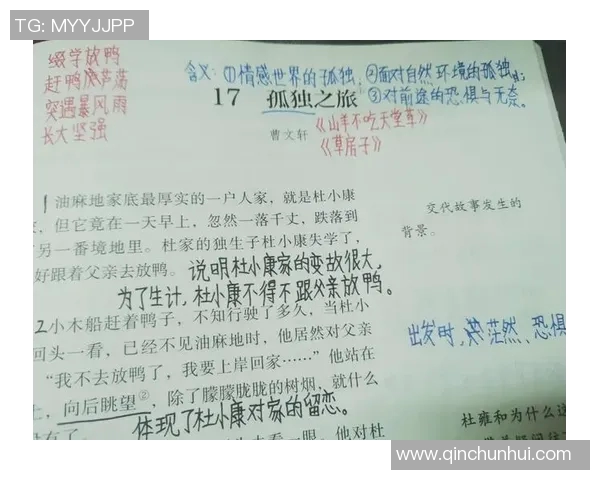 TG: MYYJJPP
缀学放鸭
赶鸭
突遇暴风雨
长大坚强
含义:①情感世界的孤独,②面对自然环境的孤独;
③对前途的恐惧与无奈。
17 孤独之旅
曹文轩
《山羊不吃天堂草》
《草房子》
1油麻地家底最厚实的一户人家,就是杜小康
,但它竟在一天早上,忽然一落千丈,跌落到
另一番境地里。杜家的独生子杜小康失学了,
好跟着父亲去放鸭。说明杜小康家的变故很大,
为了生计,杜小康不得不跟父亲放鸭。
交代故事发生的
背景。
2小木船赶着鸭子,不知行驶了多久,当杜小
回头一看,已经不见油麻地时,他居然对父亲
“我不去放鸭了,我要上岸回家……”他站在
上,向后眺望②,除了朦朦胧胧的树烟,就什么
没有了。体现了杜小康对家的留恋。
出发时,茫然、恐惧
杜雍和为什么这
他对杜
www.qinchunhui.com